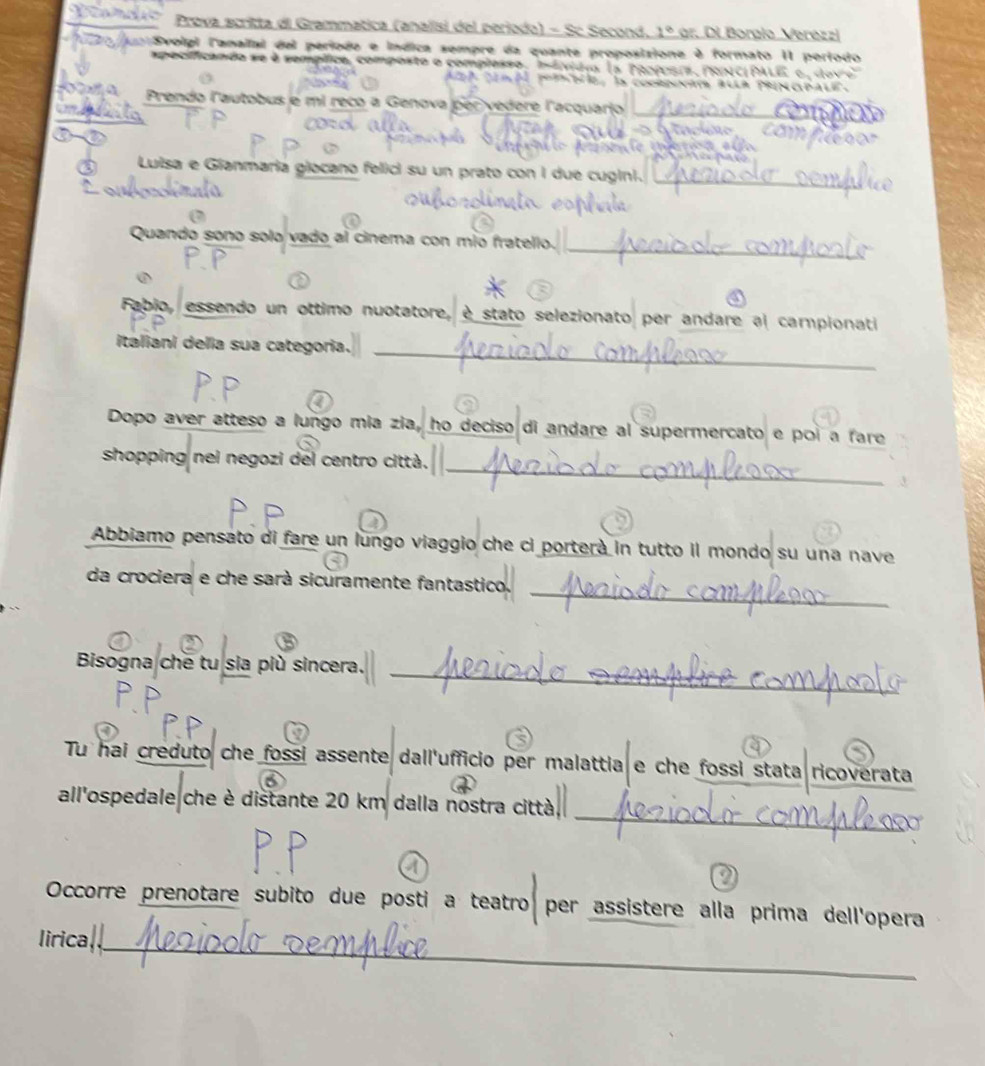 Prova scritta di Grammatica (analisi del periodo) - Sc Second. 1° gr. Di Borgio Verezzi
Svolgi l'analisi del periodo e indica sempre da quante proposizione è formato il periodo
specificando se è semplice, composto o complesso.
forma
implicita
Prendo l'autobus e mi reco a Genova per vedere l'acquario
P.P
coord alla
complesso
P.P
Luisa e Gianmaria giocano felici su un prato con i due cugini. periodo semplice
subordinata
subordinata esplicita
Quando sono solo vado al cinema con mio fratello. periodo composto
P.P
① ② * ③ ④
Fabio, essendo un ottimo nuotatore, è stato selezionato per andare ai campionati
P.P
italiani della sua categoria. periodo complesso
P.P
Dopo aver atteso a lungo mia zia, ho deciso di andare al supermercato e poi a fare
shopping nei negozi del centro città. periodo complesso
P.P
Abbiamo pensato di fare un lungo viaggio che ci porterà in tutto il mondo su una nave
da crociera e che sarà sicuramente fantastico. periodo complesso
① ② ③
Bisogna che tu sia più sincera. periodo semplice composto
P.P
P.P
Tu hai creduto che fossi assente dall'ufficio per malattia e che fossi stata ricoverata
all'ospedale che è distante 20 km dalla nostra città, periodo complesso
P.P
① ②
Occorre prenotare subito due posti a teatro per assistere alla prima dell'opera
lirica. periodo semplice